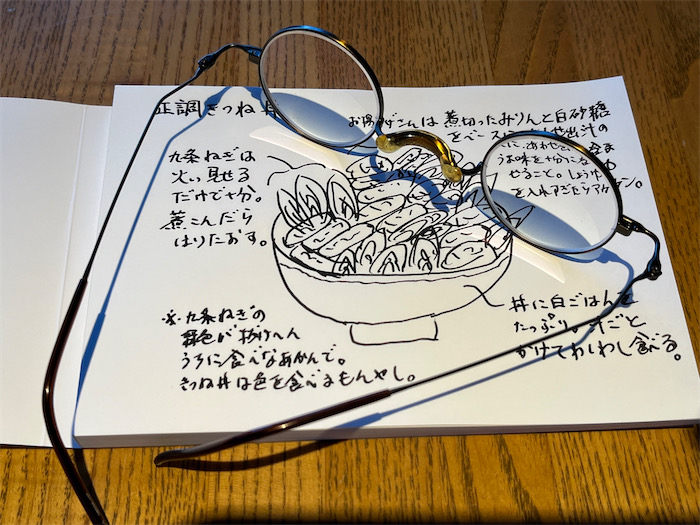 正調きつね丼
お揚げさんは煮切ったみりんと白砂糖
をベースに
や出汁の
うま味を十分に
やること。しょうゆ
を入れすぎたらアカン。
九条ねぎは
火い見せる
だけで十分。
煮こんだら
はりたおす。
丼に白ごはんを
たっぷり。汁ごと
かけてわしわし食べる。
※九条ねぎの
緑色が抜けへん
うちに食べなあかんで。
きつね丼は色を食べるもんやし。